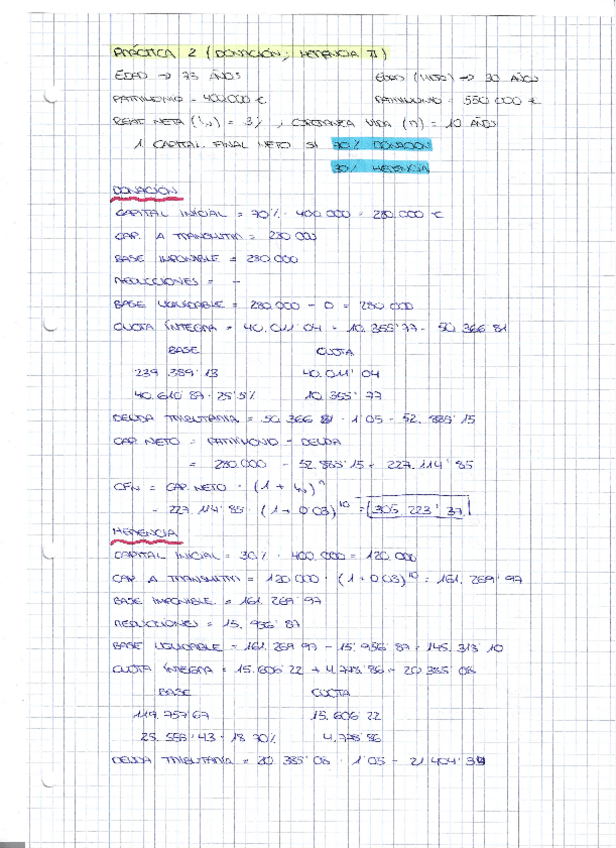 PRÁCTICA 2 (DONACIÓN; HERENCIA II)
EDAD → 73 AÑOS EDAD (NIETO) → 30 AÑOS
PATRIMONIO = 400.000 € PATRIMONIO = 550 000 €
RENT NETA (in) = 3%, ESPERANZA VIDA (n) = 10 AÑOS
1 CAPITAL FINAL NETO SI 70% DONACIÓN
30% HERENCIA
DONACIÓN
CAPITAL INICIAL = 70% · 400 000 = 280.000 €
CAP. A TRANSMITIR = 280 000
BASE IMPONIBLE = 280 000
REDUCCIONES = -
BASE LIQUIDABLE = 280.000 - 0 = 280 000
CUOTA ÍNTEGRA = 40.011'04 + 10.355'77 = 50.366'81
BASE CUOTA
239.389'13 40.011'04
40.610'87 · 25'5% 10.355'77
DEUDA TRIBUTARIA = 50.366'81 · 1'05 = 52.885'15
CAP. NETO = PATRIMONIO - DEUDA
= 280.000 - 52.885'15 = 227.114'85
CFN = CAP. NETO · (1 + in)ⁿ
= 227.114'85 · (1 + 0'03)¹⁰ = 305.223'37
HERENCIA
CAPITAL INICIAL = 30% · 400.000 = 120.000
CAP. A TRANSMITIR = 120.000 · (1 + 0'03)¹⁰ = 161.269'97
BASE IMPONIBLE = 161.269'97
REDUCCIONES = 15.956'87
BASE LIQUIDABLE = 161.269'97 - 15.956'87 = 145.313'10
CUOTA ÍNTEGRA = 15.606'22 + 4.778'86 = 20.385'08
BASE CUOTA
119.757'67 15.606'22
25.555'43 · 18'70% 4.778'86
DEUDA TRIBUTARIA = 20.385'08 · 1'05 = 21.404'34